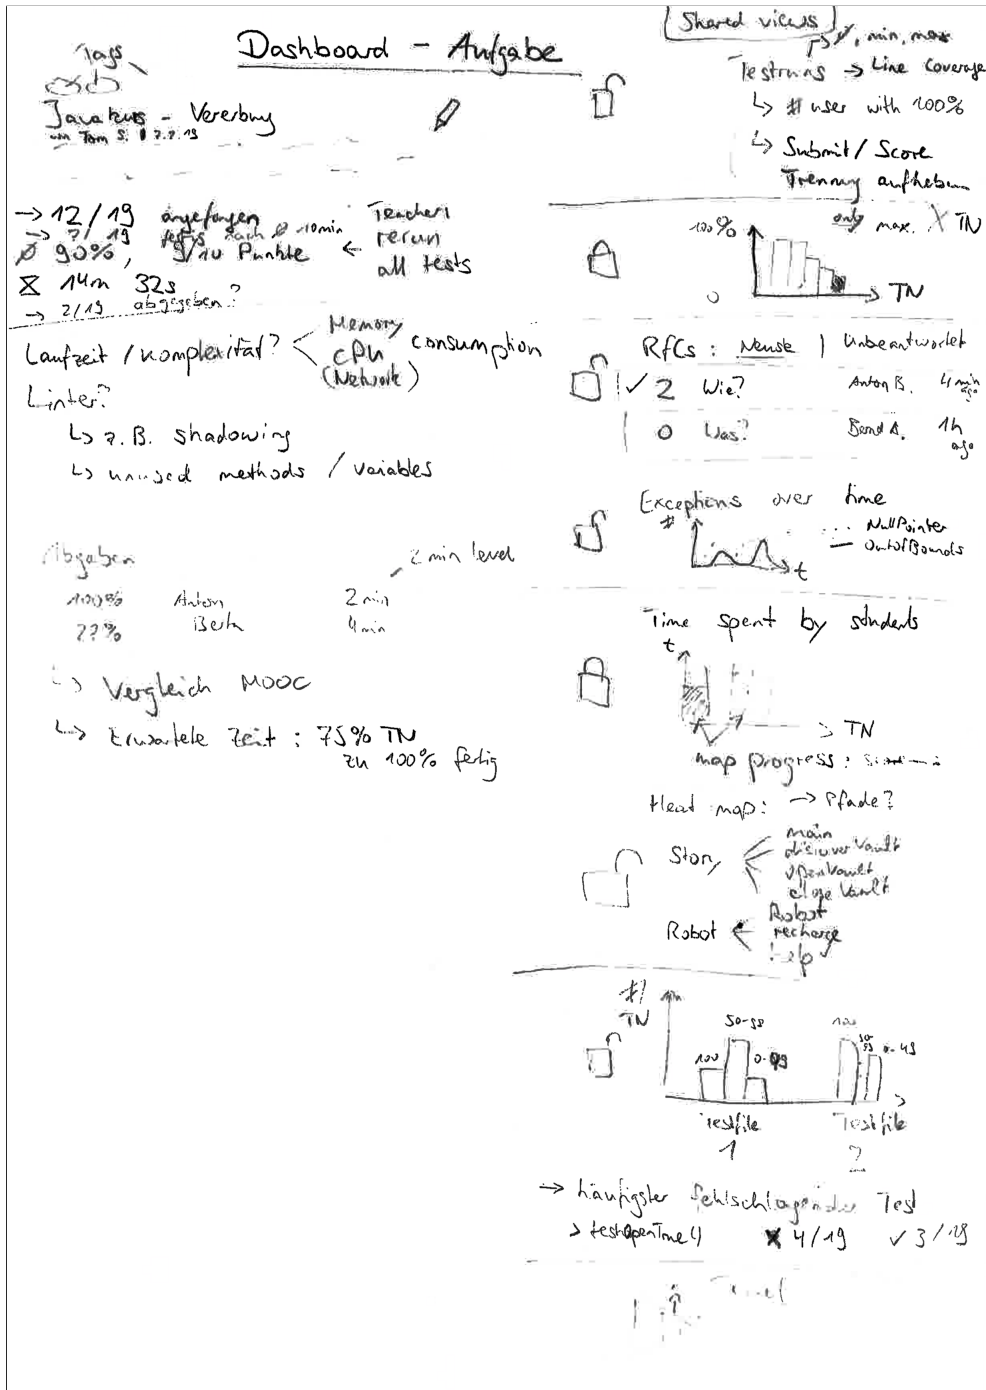 Dashboard - Aufgabe
Tags
Javakurs - Vererbung
von Tom S.
→ 12/19 angefangen
→ ?/19 fertig nach ø 10min
ø 90%, 9/10 Punkte ←
Teacher:
rerun
all tests
14m 32s
→ 2/19 abgegeben?
Laufzeit / Komplexität?
Memory
CPU
(Network)
consumption
Linter?
↳ z.B. shadowing
↳ unused methods / variables
Abgaben
2 min level
100% Anton 2 min
??% Berta 4 min
↳ Vergleich MOOC
↳ Erwartete Zeit : 75% TN
zu 100% fertig
Shared views
↱ ø, min, max
Testruns → Line Coverage
↳ # user with 100%
↳ Submit / Score
Trennung aufheben
100%
only max. X TN
0
TN
RfCs : Neuste | Unbeantwortet
✓ 2 Wie? Anton B. 4 min ago
0 Was? Bernd A. 1h ago
Exceptions over time
#
t
... NullPointer
— OutOfBounds
Time spent by students
t
TN
map progress :
Heat map: → Pfade?
Story
main
discoverVault
openVault
closeVault
Robot
Robot
recharge
help
#/
TN
100
50-99
0-49
100
50-
99
0-49
Testfile
1
Testfile
2
→ häufigster fehlschlagender Test
> testOpenTime() ✗ 4/19 ✓ 3/19